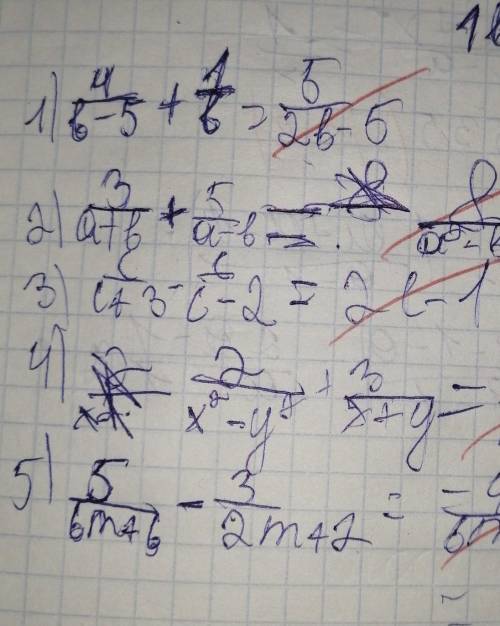 1) 4/(b-5) + 1/b = 5/(2b-5)
2) 3/(a+b) + 5/(a-b) = 8/(a²-b
3) c/(c+3) - c/(c-2) = 2c-1
4) 2/(x²-y²) + 3/(x+y) =
5) 5/(6m+6) - 3/(2m+2) =